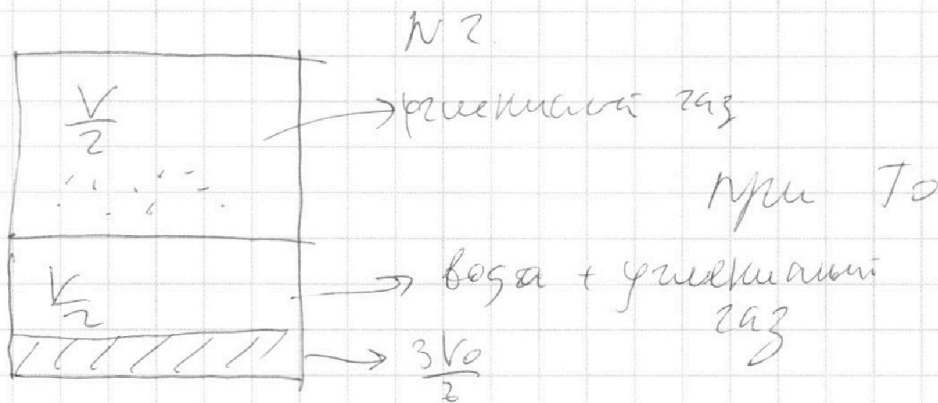 N 2
V/2
углекислый газ
при T0
V/2
вода + углекислый
газ
3V0/2